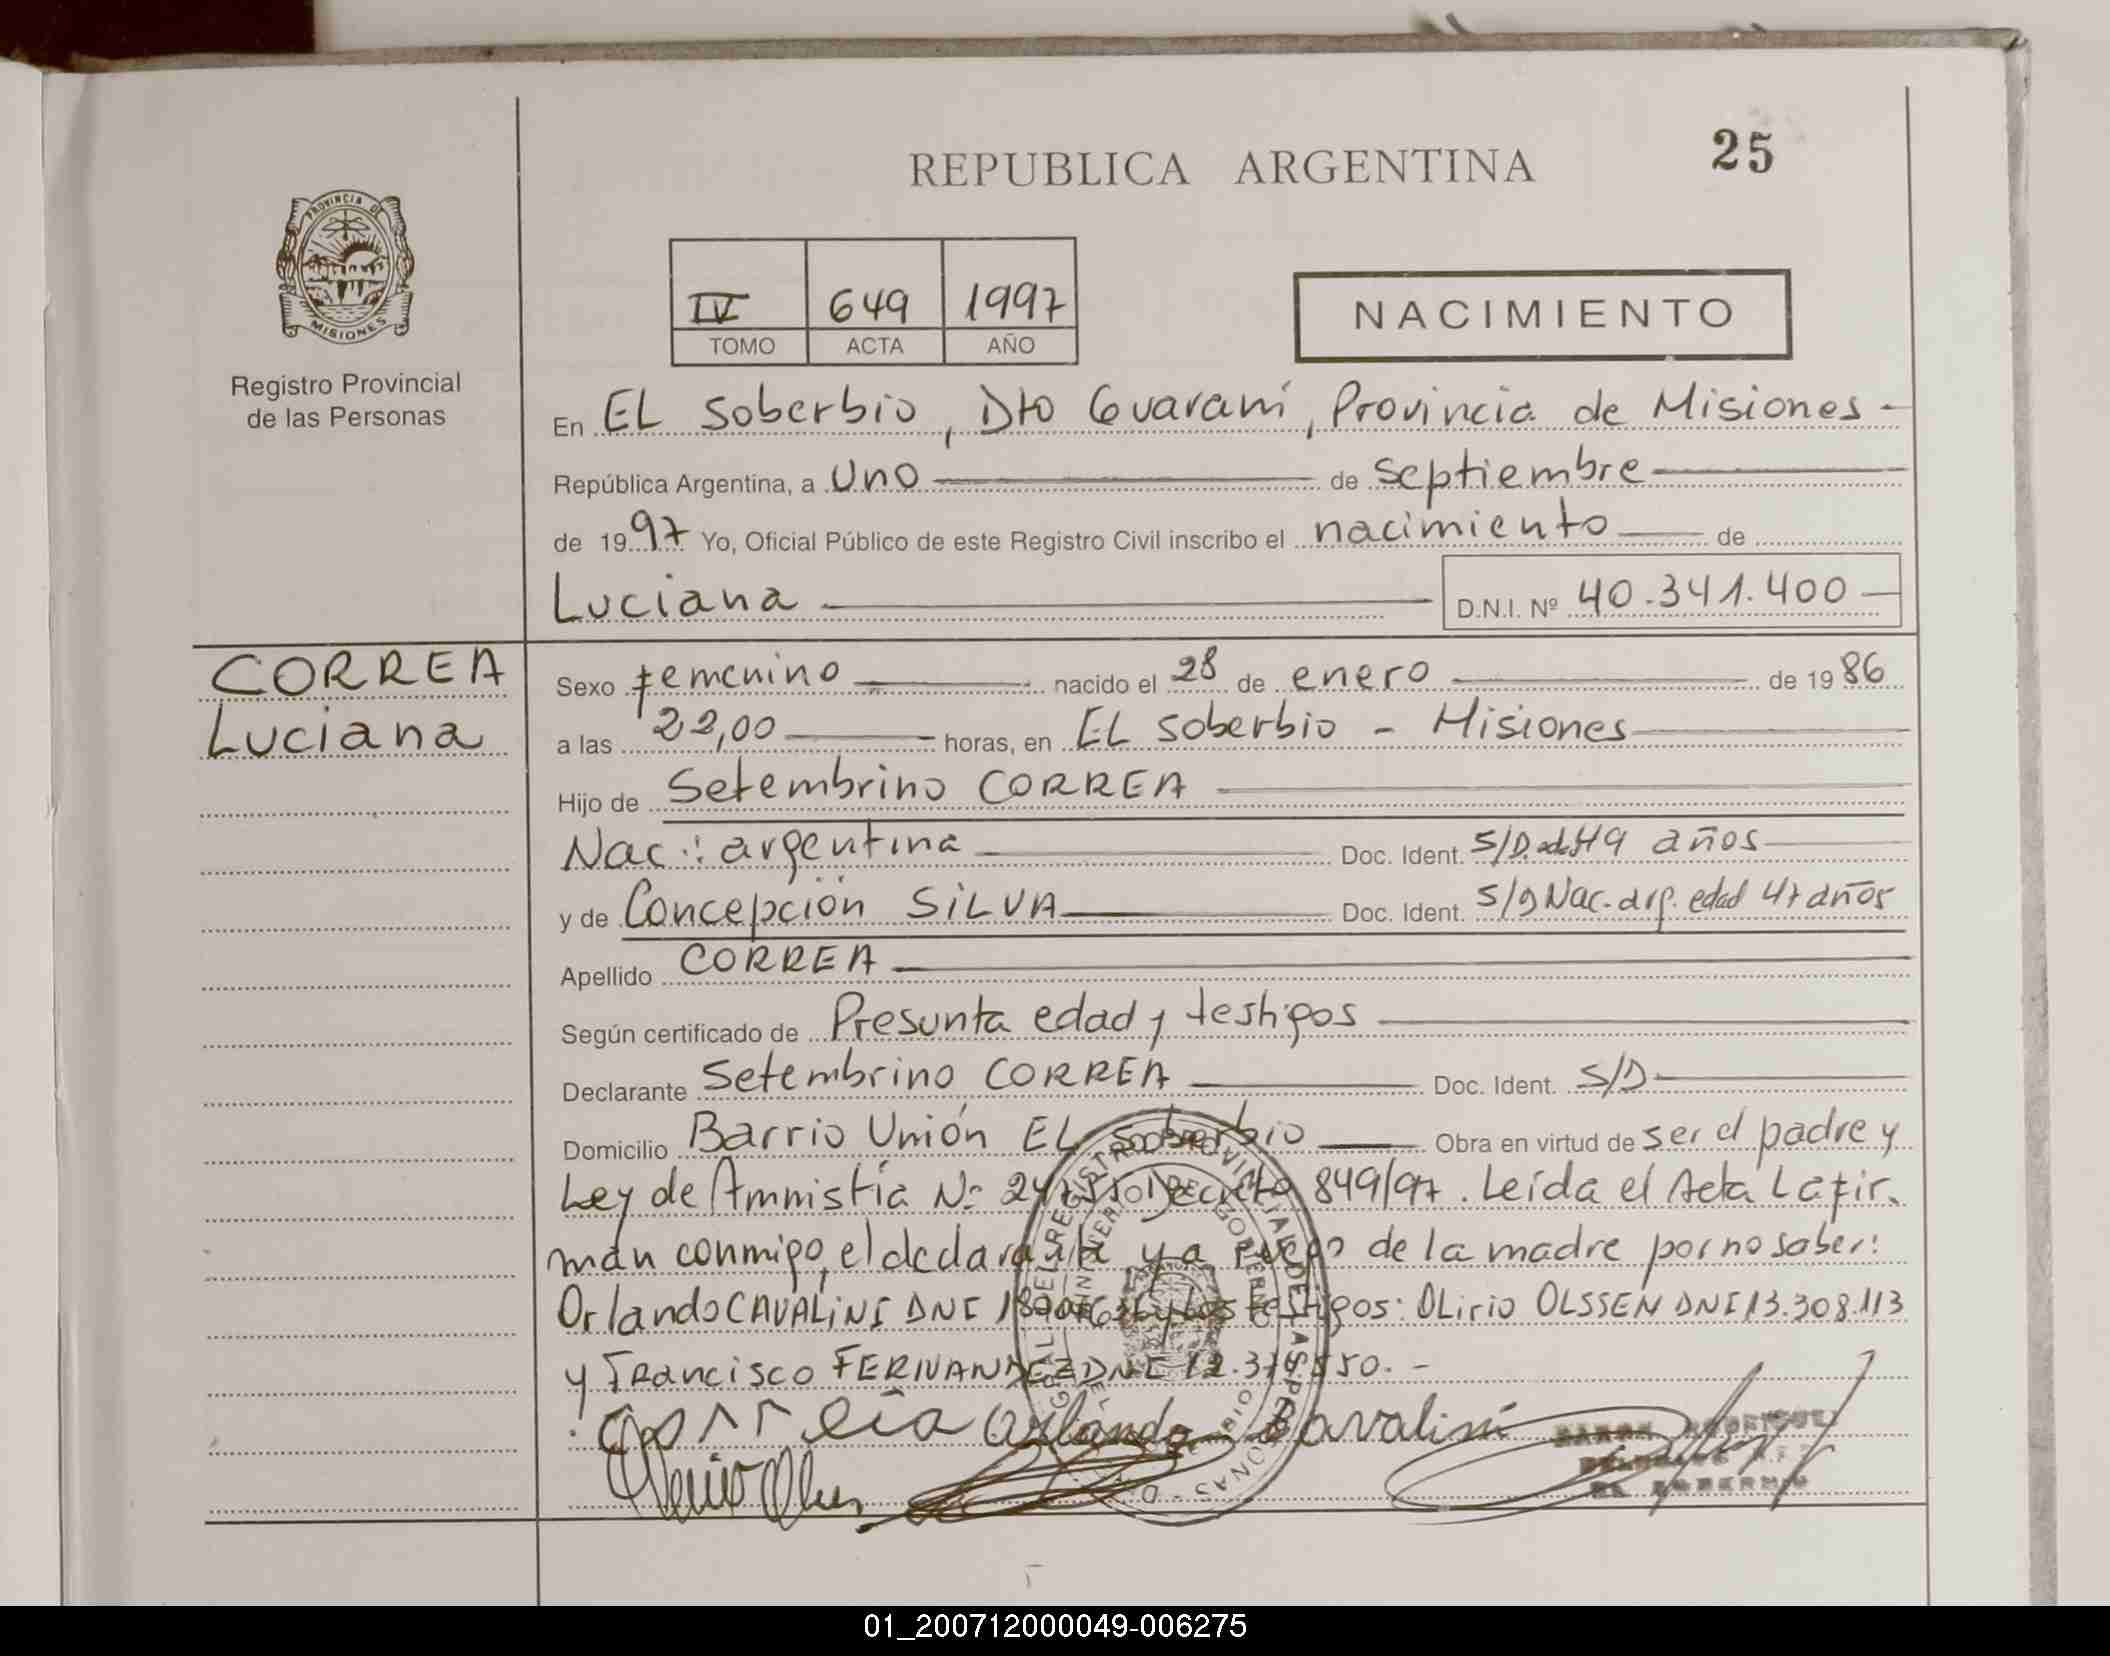 25
REPUBLICA ARGENTINA
PROVINCIA DE
MISIONES
Registro Provincial
de las Personas
IV 649 1997
TOMO ACTA AÑO
NACIMIENTO
En EL Soberbio, Dto Guaraní, Provincia de Misiones -
República Argentina, a uno de septiembre
de 1997 Yo, Oficial Público de este Registro Civil inscribo el nacimiento de
Luciana D.N.I. Nº 40.341.400
CORREA
Luciana
Sexo femenino nacido el 28 de enero de 1986
a las 22,00 horas, en EL Soberbio - Misiones
Hijo de Setembrino CORREA
Nac.: argentina Doc. Ident. S/D. 49 años
y de Concepción SILVA Doc. Ident. S/D Nac. arg. edad 47 años
Apellido CORREA
Según certificado de Presunta edad y testigos
Declarante Setembrino CORREA Doc. Ident. S/D
Domicilio Barrio Unión EL Soberbio Obra en virtud de ser el padre y
Ley de Amnistía Nº Decreto 849/97. Leída el Acta La fir-
man conmigo, el declarante y a ruego de la madre por no saber:
Orlando CAVALINI DNI y los testigos: OLirio OLSSEN DNI 13.308.113
y Francisco FERNANDEZ DNI
Correia Orlando Cavalini
RODRIGUEZ
EL SOBERBIO
01_200712000049-006275